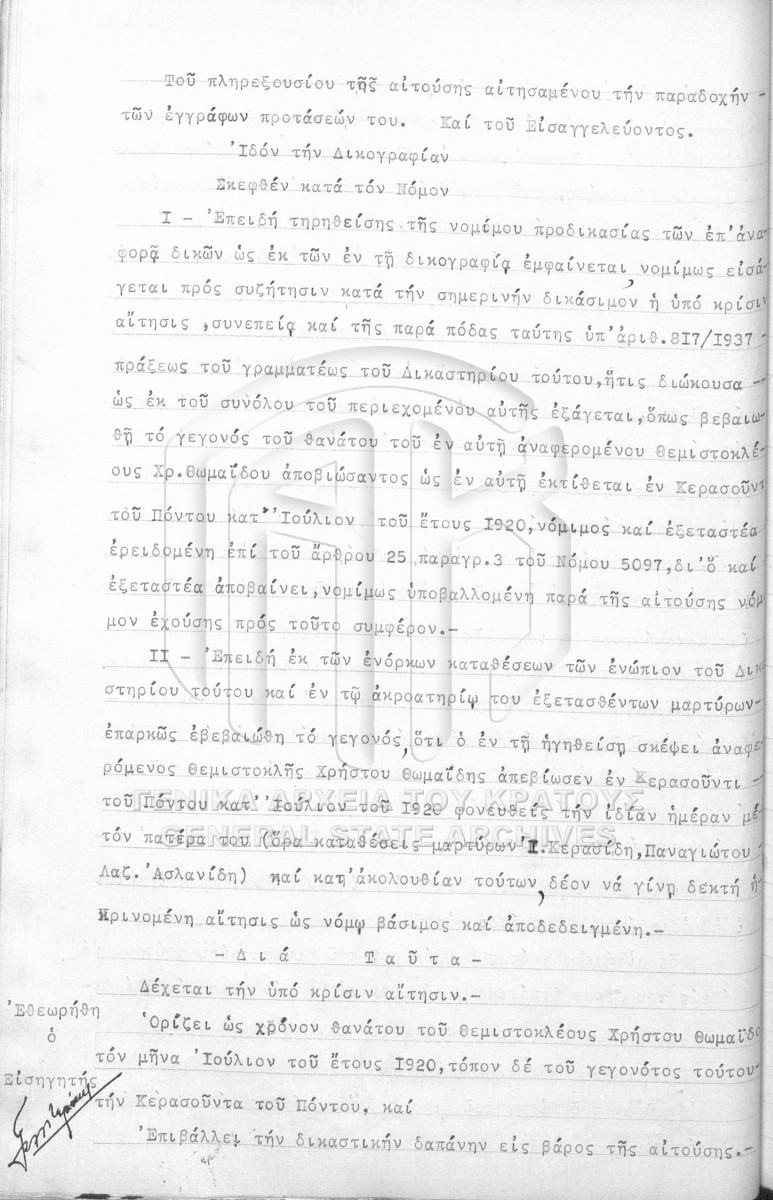 Τοῦ πληρεξουσίου τῆς αἰτούσης αἰτησαμένου τήν παραδοχήν -
τῶν ἐγγράφων προτάσεών του. Καί τοῦ Εἰσαγγελεύοντος.
Ἰδόν τήν Δικογραφίαν
Σκεφθέν κατά τόν Νόμον
I - Ἐπειδή τηρηθείσης τῆς νομίμου προδικασίας τῶν ἐπ'ἀνα-
φορᾷ δικῶν ὡς ἐκ τῶν ἐν τῇ δικογραφίᾳ ἐμφαίνεται, νομίμως εἰσά
γεται πρός συζήτησιν κατά τήν σημερινήν δικάσιμον ἡ ὑπό κρίσιν
αἴτησις ,συνεπείᾳ καί τῆς παρά πόδας ταύτης ὑπ'ἀριθ.8I7/I937 -
πράξεως τοῦ γραμματέως τοῦ Δικαστηρίου τούτου,ἥτις διώκουσα -
ὡς ἐκ τοῦ συνόλου τοῦ περιεχομένου αὐτῆς ἐξάγεται,ὅπως βεβαιω-
θῇ τό γεγονός τοῦ θανάτου τοῦ ἐν αὐτῇ ἀναφερομένου Θεμιστοκλέ-
ους Χρ.Θωμαΐδου ἀποβιώσαντος ὡς ἐν αὐτῇ ἐκτίθεται ἐν Κερασοῦντ
τοῦ Πόντου κατ' Ἰούλιον τοῦ ἔτους I920,νόμιμος καί ἐξεταστέα
ἐρειδομένη ἐπί τοῦ ἄρθρου 25 παραγρ.3 τοῦ Νόμου 5097,δι'ὅ καί
ἐξεταστέα ἀποβαίνει,νομίμως ὑποβαλλομένη παρά τῆς αἰτούσης νόμ
μον ἐχούσης πρός τοῦτο συμφέρον.-
II - Ἐπειδή ἐκ τῶν ἐνόρκων καταθέσεων τῶν ἐνώπιον τοῦ Δικ
στηρίου τούτου καί ἐν τῷ ἀκροατηρίῳ του ἐξετασθέντων μαρτύρων-
ἐπαρκῶς ἐβεβαιώθη τό γεγονός,ὅτι ὁ ἐν τῇ ἡγηθείσῃ σκέψει ἀναφε
ρόμενος Θεμιστοκλῆς Χρήστου Θωμαΐδης ἀπεβίωσεν ἐν Κερασοῦντι -
τοῦ Πόντου κατ' Ἰούλιον τοῦ I920 φονευθείς τήν ἰδίαν ἡμέραν μέ
τόν πατέρα του (ὅρα καταθέσεις μαρτύρων Ι.Κερασίδη,Παναγιώτου -
Λαζ.Ἀσλανίδη) καί κατ'ἀκολουθίαν τούτων,δέον νά γίνῃ δεκτή ἡ
κρινομένη αἴτησις ὡς νόμῳ βάσιμος καί ἀποδεδειγμένη.-
-Διά Ταῦτα-
Δέχεται τήν ὑπό κρίσιν αἴτησιν.-
Ὁρίζει ὡς χρόνον θανάτου τοῦ Θεμιστοκλέους Χρήστου Θωμαΐδο
τόν μῆνα Ἰούλιον τοῦ ἔτους I920,τόπον δέ τοῦ γεγονότος τούτου-
τήν Κερασοῦντα τοῦ Πόντου, καί
Ἐπιβάλλει τήν δικαστικήν δαπάνην εἰς βάρος τῆς αἰτούσης.-
Ἐθεωρήθη
ὁ
Εἰσηγητής
ΓΕΝΙΚΑ ΑΡΧΕΙΑ ΤΟΥ ΚΡΑΤΟΥΣ
GENERAL STATE ARCHIVES